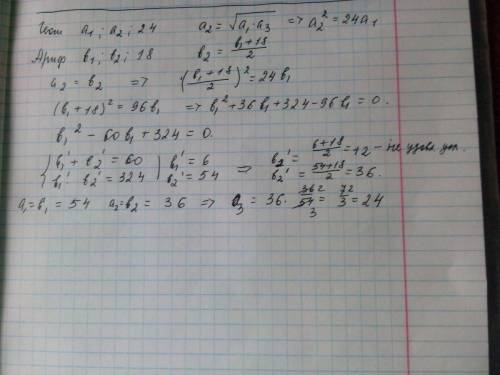 Геом a₁; a₂; 24   a₂ = √(a₁·a₃) => a₂² = 24a₁
Ариф b₁; b₂; 18   b₂ = (b₁+18)/2
a₂ = b₂ => ((b₁+18)/2)² = 24b₁
(b₁+18)² = 96b₁ => b₁²+36b₁+324-96b₁ = 0.
b₁² - 60b₁+324 = 0.
{ b₁' + b₂' = 60   } b₁' = 6   => b₂' = (6+18)/2 = 12 - не удовл
{ b₁' b₂' = 324   } b₂' = 54   b₂' = (54+18)/2 = 36.
a₁ = b₁ = 54   a₂ = b₂ = 36 => a₃ = 36 · 36/54 = 72/3 = 24